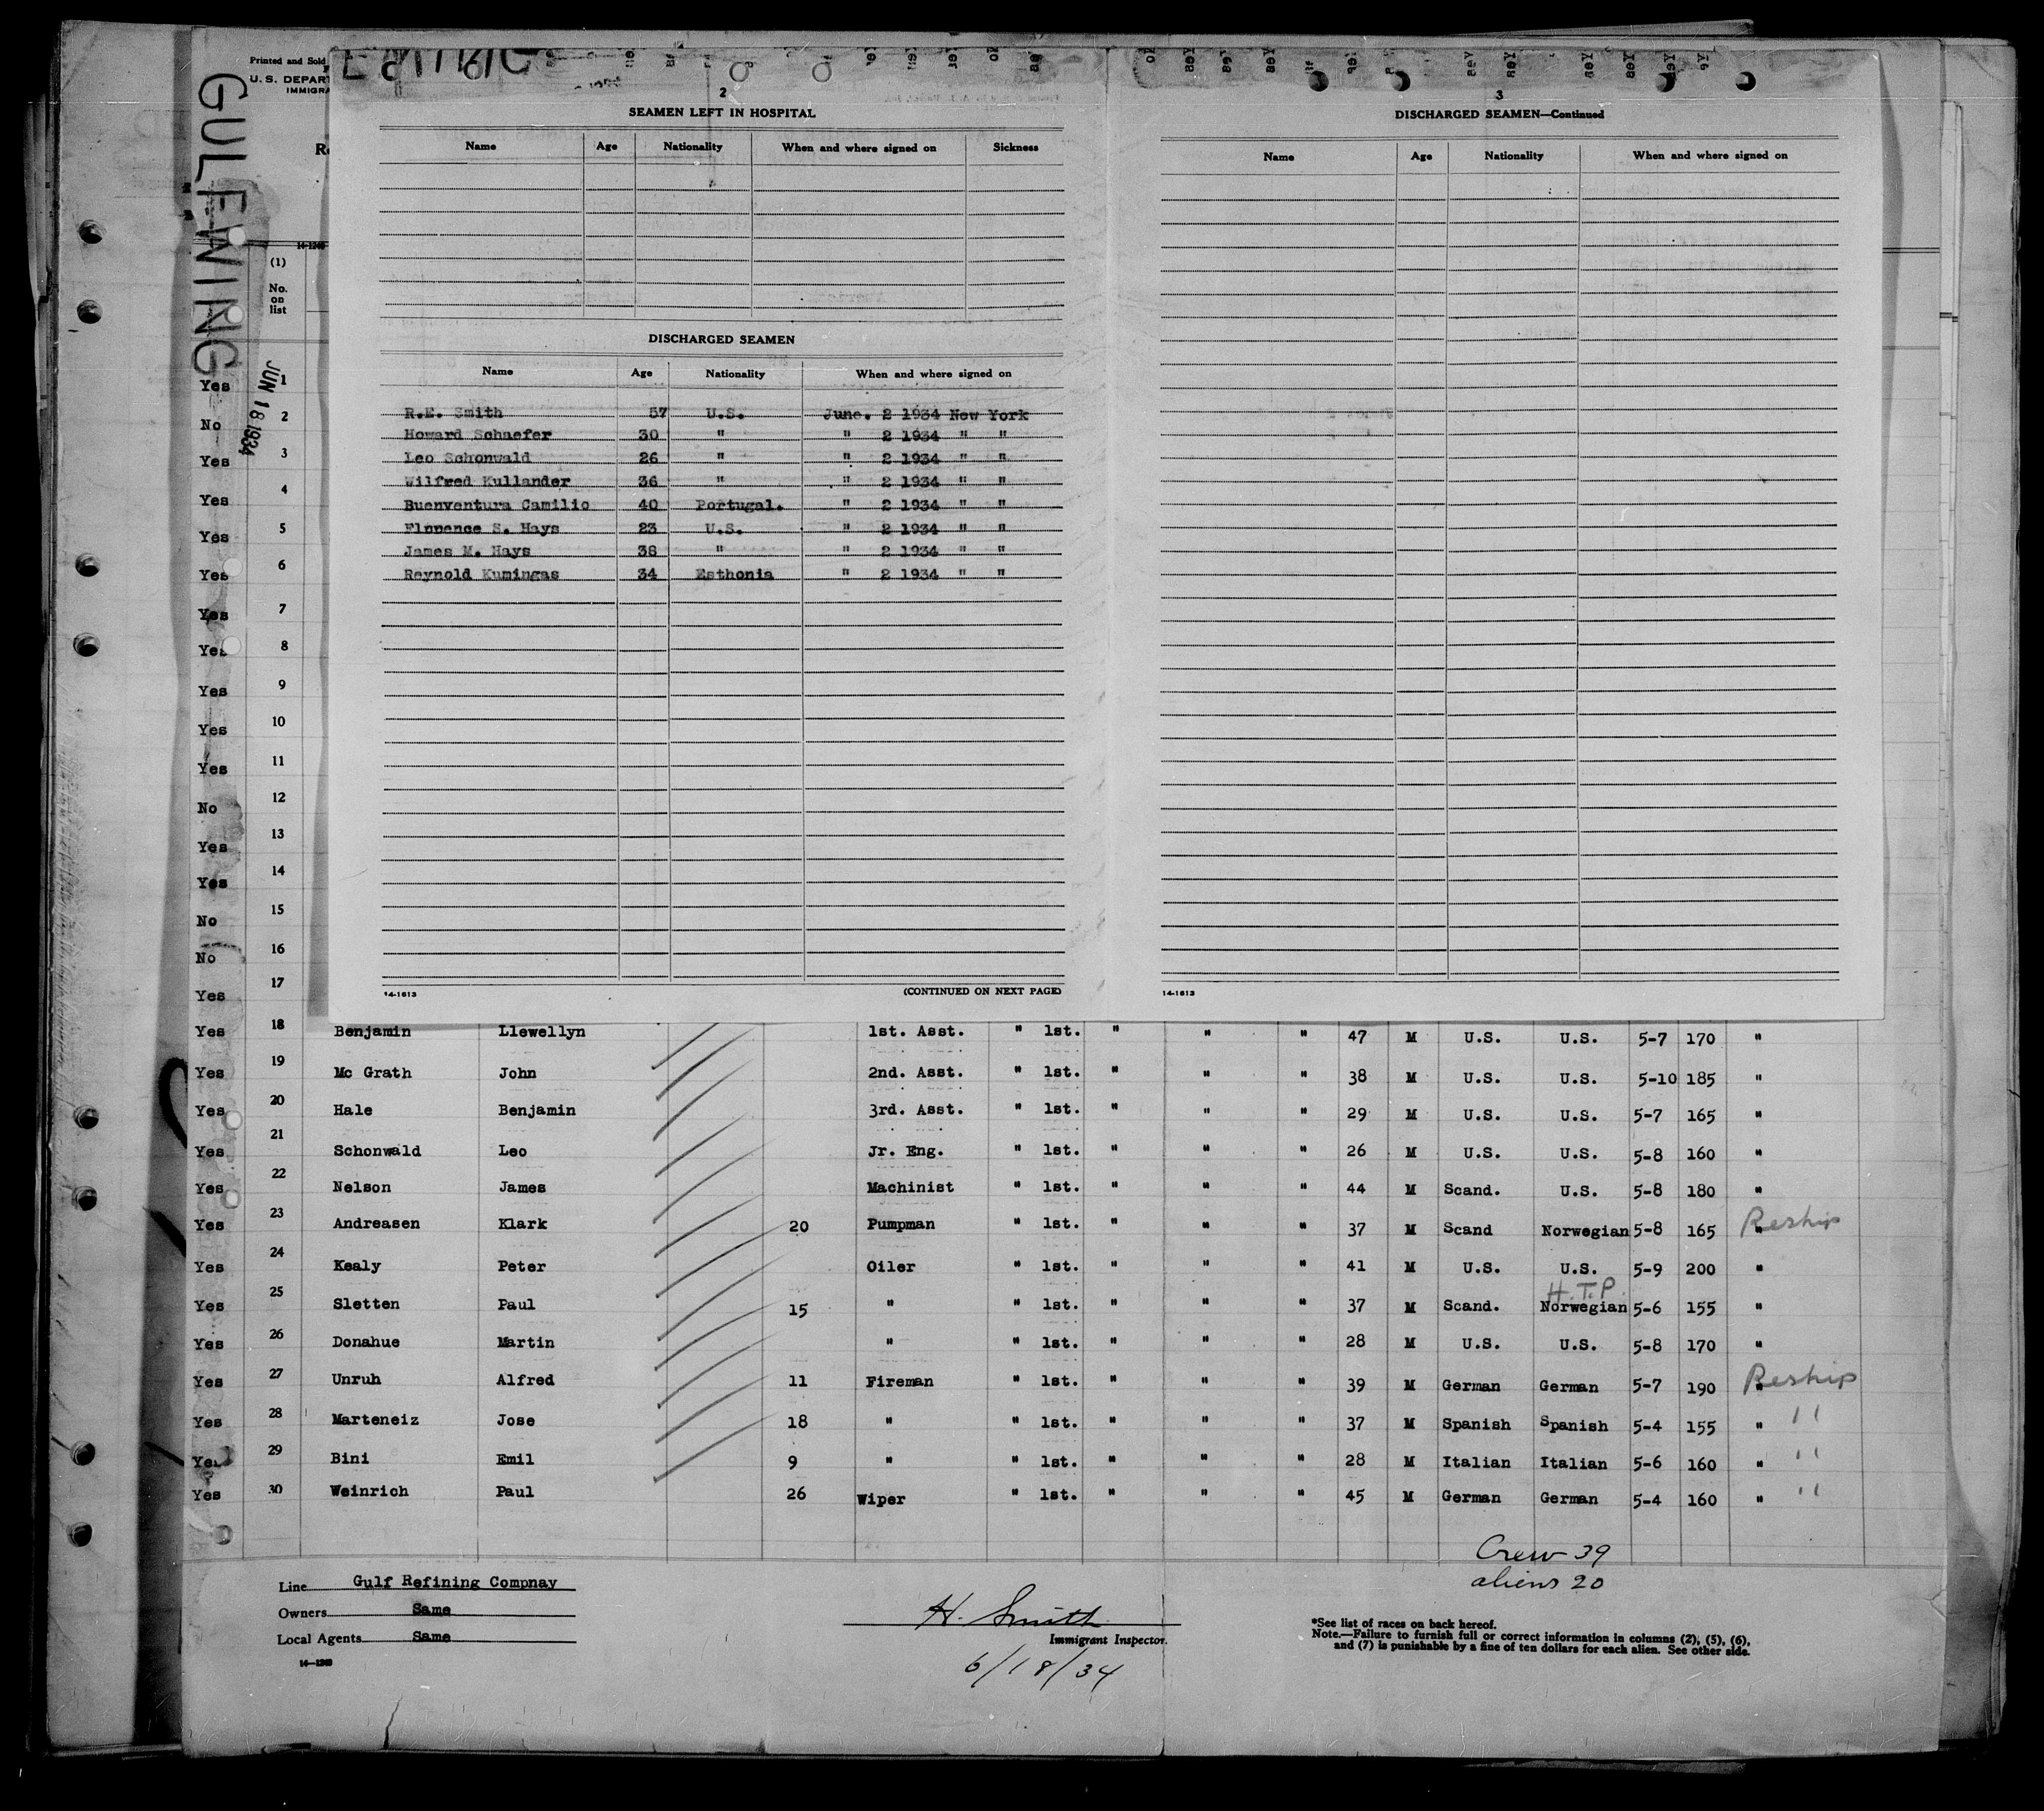 GULFWING
JUN 18 1934
Printed and Sold
U.S. DEPART
IMMIGRA
14-1240
(1)
No.
on
list
2
SEAMEN LEFT IN HOSPITAL
Name Age Nationality When and where signed on Sickness
DISCHARGED SEAMEN
Name Age Nationality When and where signed on
R.E. Smith 57 U.S. June. 2 1934 New York
Howard Schaefer 30 " " 2 1934 " "
Leo Schonwald 26 " " 2 1934 " "
Wilfred Kullander 36 " " 2 1934 " "
Buenventura Camilio 40 Portugal. " 2 1934 " "
Flopence S. Hays 23 U.S. " 2 1934 " "
James M. Hays 38 " " 2 1934 " "
Reynold Kumingas 34 Esthonia " 2 1934 " "
14-1613 (CONTINUED ON NEXT PAGE)
3
DISCHARGED SEAMEN—Continued
Name Age Nationality When and where signed on
14-1613
Yes 1
No 2
Yes 3
Yes 4
Yes 5
Yes 6
Yes 7
Yes 8
Yes 9
Yes 10
Yes 11
No 12
Yes 13
Yes 14
No 15
No 16
Yes 17
Yes 18 Benjamin Llewellyn 1st. Asst. " 1st. " " " 47 M U.S. U.S. 5-7 170 "
Yes 19 Mc Grath John 2nd. Asst. " 1st. " " " 38 M U.S. U.S. 5-10 185 "
Yes 20 Hale Benjamin 3rd. Asst. " 1st. " " " 29 M U.S. U.S. 5-7 165 "
Yes 21 Schonwald Leo Jr. Eng. " 1st. " " " 26 M U.S. U.S. 5-8 160 "
Yes 22 Nelson James Machinist " 1st. " " " 44 M Scand. U.S. 5-8 180 "
Yes 23 Andreasen Klark 20 Pumpman " 1st. " " " 37 M Scand Norwegian 5-8 165 " Reship
Yes 24 Kealy Peter Oiler " 1st. " " " 41 M U.S. U.S. 5-9 200 "
H.T.P.
Yes 25 Sletten Paul 15 " " 1st. " " " 37 M Scand. Norwegian 5-6 155 "
Yes 26 Donahue Martin " " 1st. " " " 28 M U.S. U.S. 5-8 170 "
Yes 27 Unruh Alfred 11 Fireman " 1st. " " " 39 M German German 5-7 190 " Reship
Yes 28 Marteneiz Jose 18 " " 1st. " " " 37 M Spanish Spanish 5-4 155 " "
Yes 29 Bini Emil 9 " " 1st. " " " 28 M Italian Italian 5-6 160 " "
Yes 30 Weinrich Paul 26 Wiper " 1st. " " " 45 M German German 5-4 160 " "
Crew 39
aliens 20
Line Gulf Refining Compnay
Owners Same
Local Agents Same
14-1240
H. Smith
Immigrant Inspector.
6/18/34
*See list of races on back hereof.
Note.—Failure to furnish full or correct information in columns (2), (5), (6),
and (7) is punishable by a fine of ten dollars for each alien. See other side.